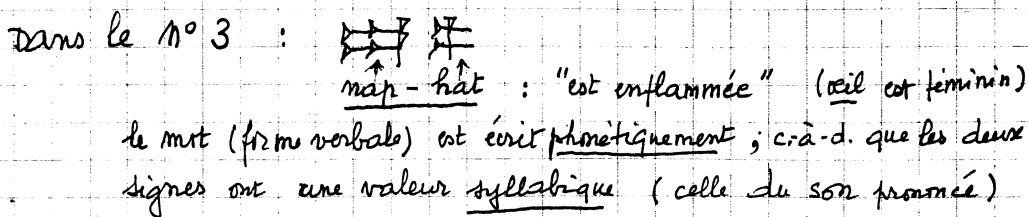 Dans le n° 3 : 𒀮 𒉺
náp - hát : "est enflammée" (œil est féminin)
le mot (forme verbale) est écrit phonétiquement ; c.-à-d. que les deux
signes ont une valeur syllabique (celle du son prononcé)